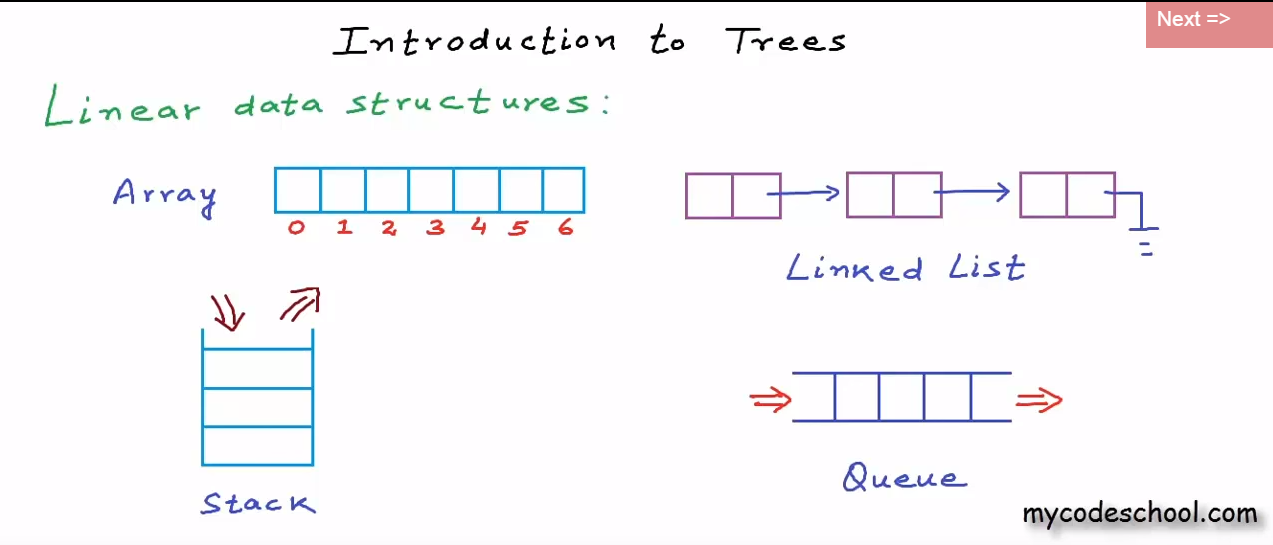 Next =>
Introduction to Trees
Linear data structures:
Array
0 1 2 3 4 5 6
Linked List
Stack
Queue
mycodeschool.com